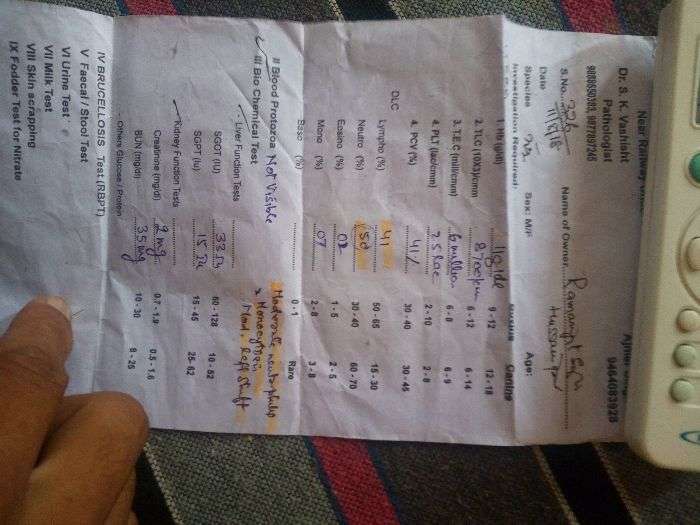 Near Railway
Dr. S. K. Vashisht
Pathologist
9464083928
S.No. 226 Name of Owner
Date 11/5/18
Species Sex: M/F Age:
Investigation Required:
Canine
1. Hb (g/dl) 11g/dl 9 - 12 12 - 18
2. TLC (10X3)cmm 6 - 12 6 - 14
3. T.E.C (mil/cmm) 6 million 6 - 8 6 - 9
4. PLT (lac/cmm) 2.5 Lac 2 - 10 2 - 8
4. PCV (%) 41% 30 - 40 30 - 45
DLC
Lympho (%) 41 50 - 65 15 - 30
Neutro (%) 50 30 - 40 60 - 70
Eosino (%) 02 1 - 5 2 - 5
Mono (%) 07 2 - 8 3 - 8
Baso (%) 0 - 1 Rare
II Blood Protozoa Not Visible
Moderate neutrophils
Mild Left Shift
III Bio Chemical Test
- Liver Function Tests
SGOT (IU) 60 - 128 10 - 52
SGPT (IU) 15 15 - 45 25 - 62
Kidney Function Tests
Creatinine (mg/dl) 2 mg 0.7 - 1.9 0.5 - 1.6
BUN (mg/dl) 35 mg 10 - 30 8 - 25
- Others Glucose / Protein
IV BRUCELLOSIS Test (RBPT)
V Faecal / Stool Test
VI Urine Test
VII Milk Test
VIII Skin scrapping
IX Fodder Test for Nitrate